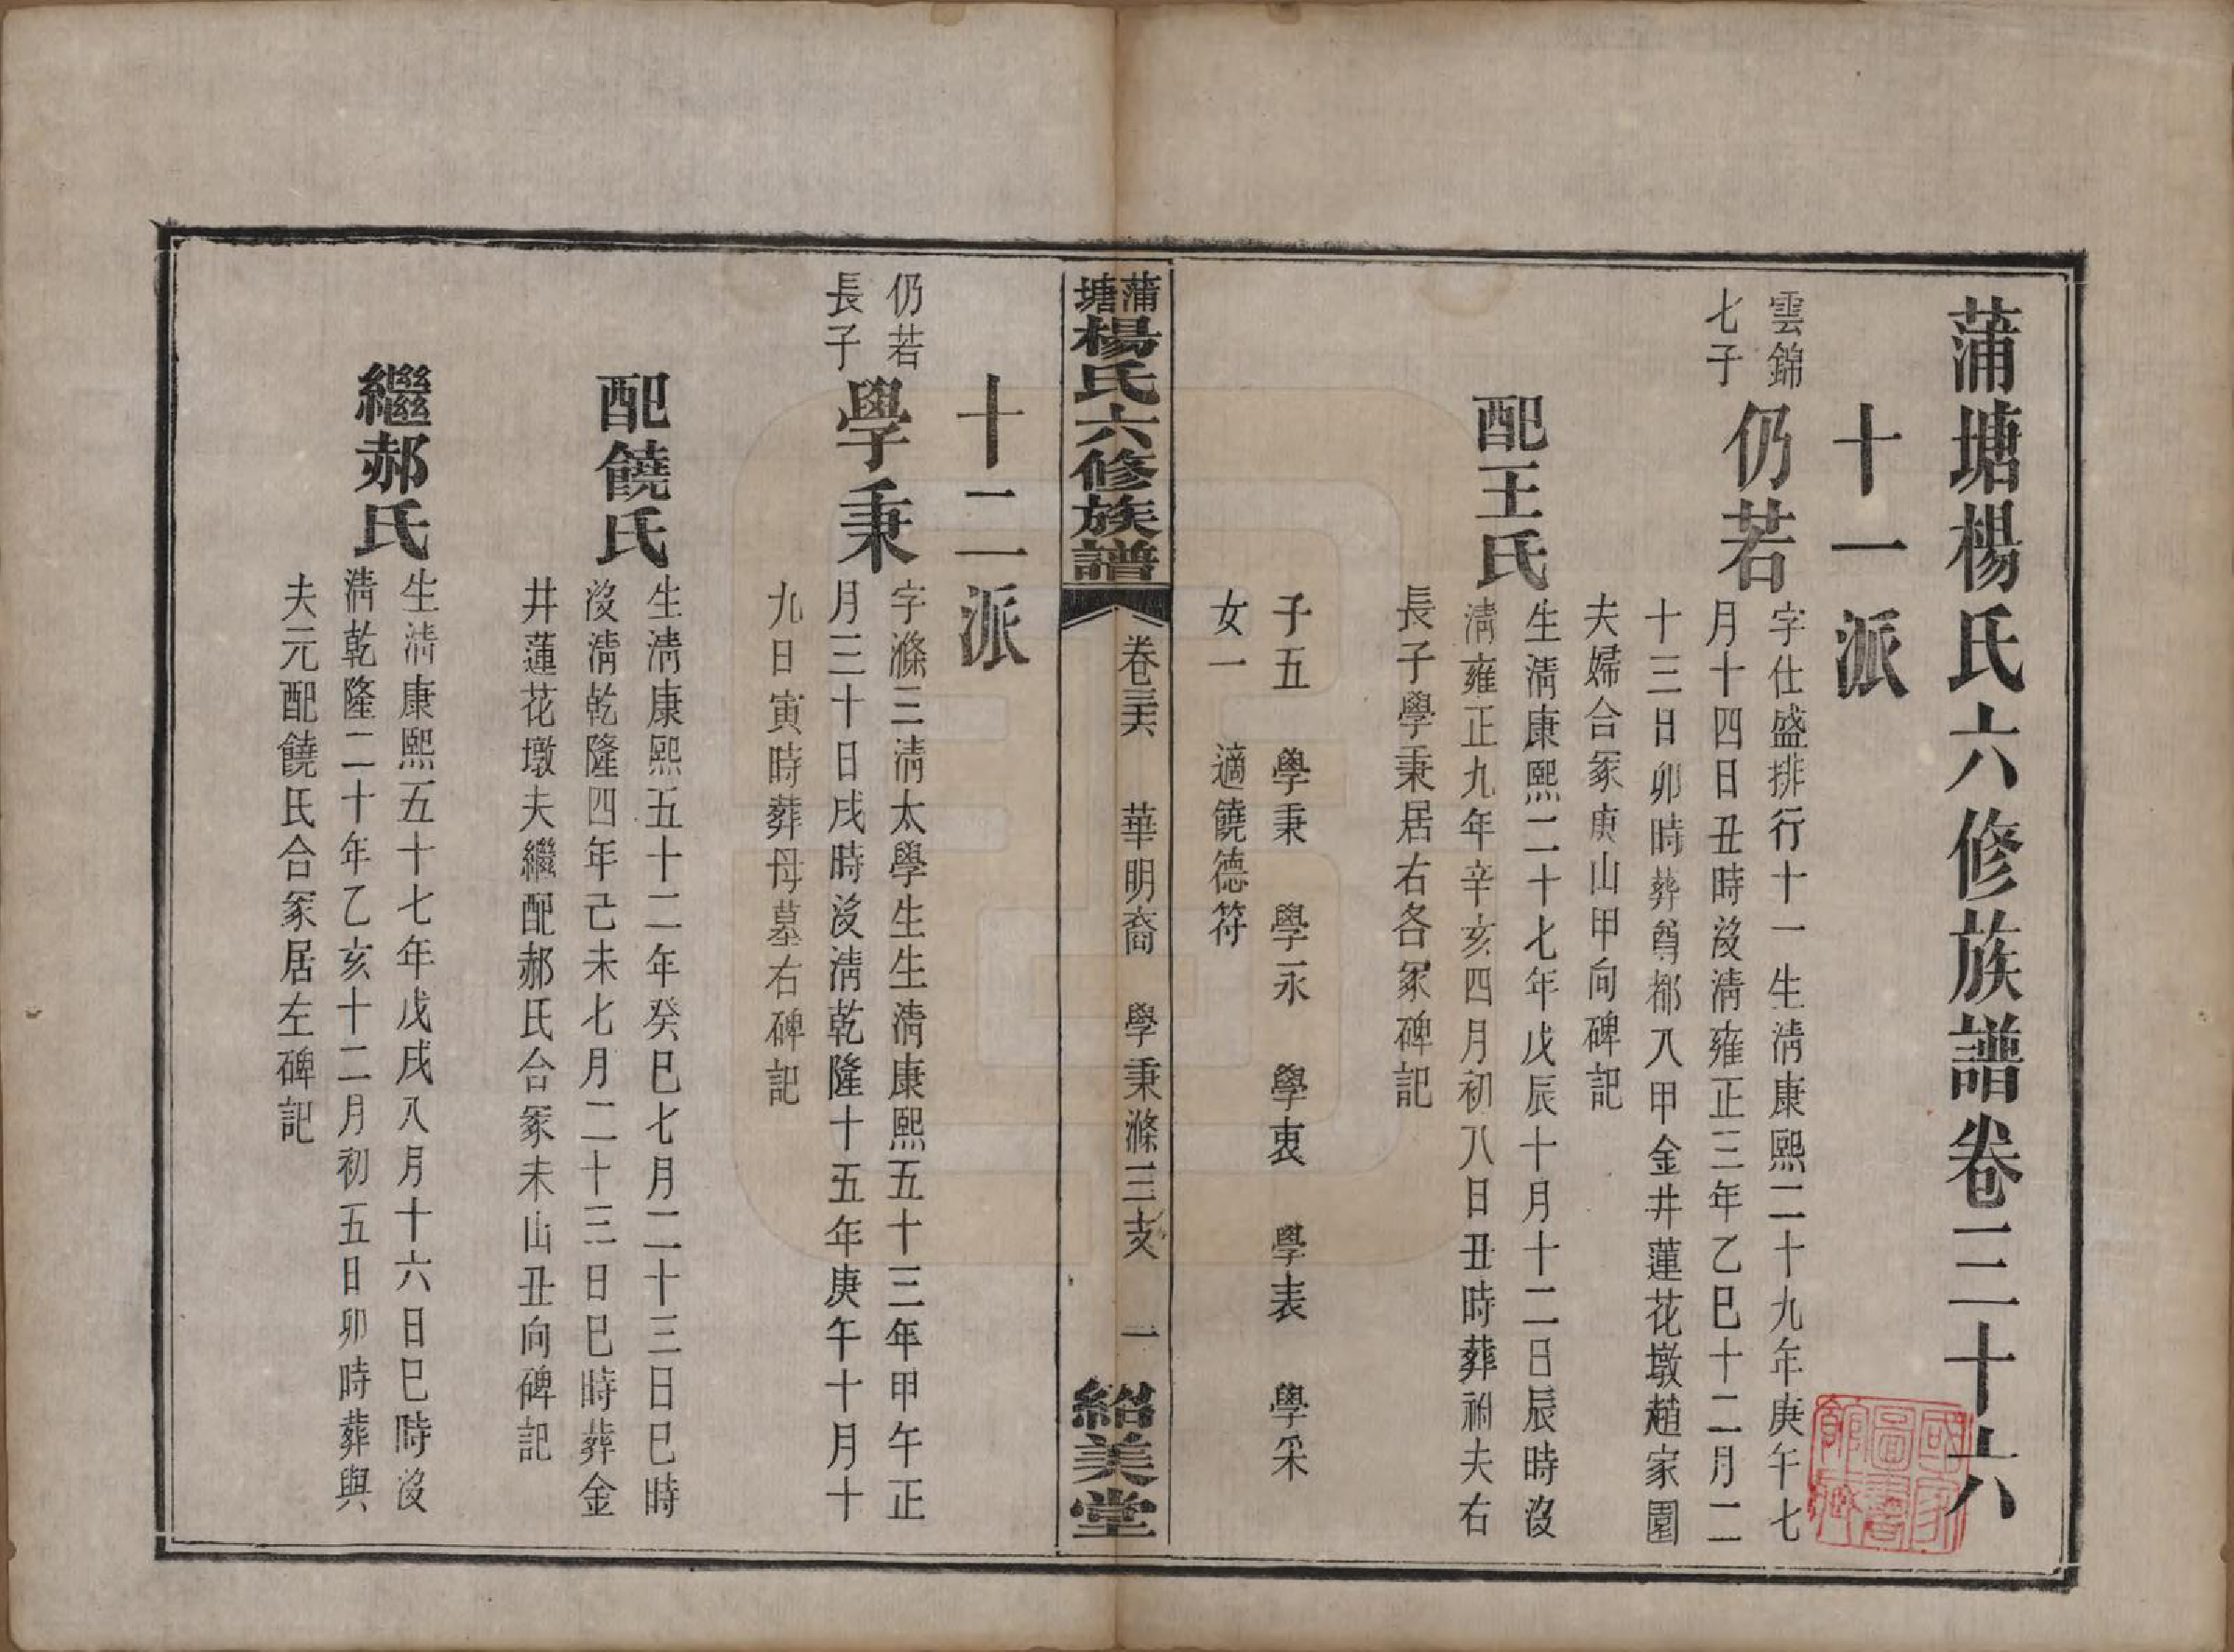 蒲塘楊氏六修族譜卷三十六
十一派
雲錦
七子
仍若
字仕盛排行十一生淸康熙二十九年庚午七
月十四日丑時沒淸雍正三年乙巳十二月二
十三日卯時葬尊都八甲金井蓮花墩趙家園
夫婦合冢庚山甲向碑記
配王氏
生淸康熙二十七年戊辰十月十二日辰時沒
淸雍正九年辛亥四月初八日丑時葬祔夫右
長子學秉居右各冢碑記
子五 學秉 學永 學衷 學表 學采
女一 適饒德符
蒲塘楊氏六修族譜 卷三十六 華明裔 學秉滌三支 一 紹美堂
十二派
仍若
長子
學秉
字滌三淸太學生生淸康熙五十三年甲午正
月三十日戌時沒淸乾隆十五年庚午十月十
九日寅時葬母墓右碑記
配饒氏
生淸康熙五十二年癸巳七月二十三日巳時
沒淸乾隆四年己未七月二十三日巳時葬金
井蓮花墩夫繼配郝氏合冢未山丑向碑記
繼郝氏
生淸康熙五十七年戊戌八月十六日巳時沒
淸乾隆二十年乙亥十二月初五日卯時葬與
夫元配饒氏合冢居左碑記
國家圖書館藏